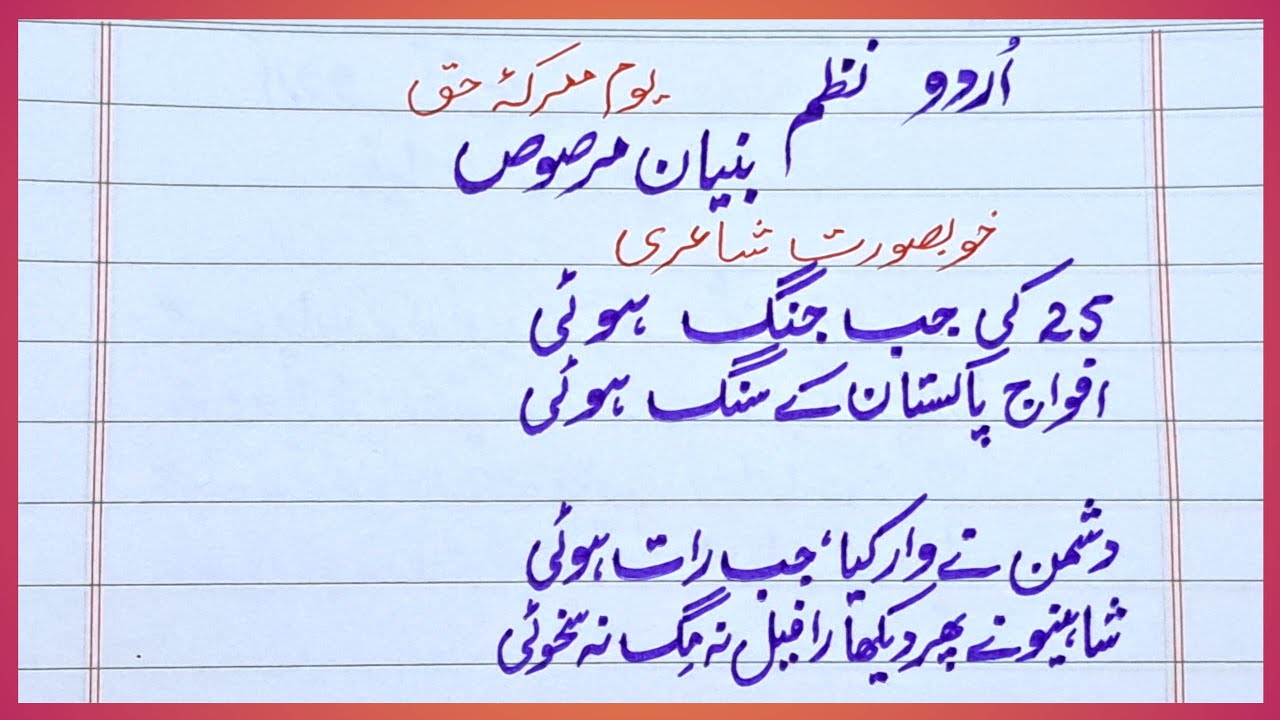 اُردو نظم یوم معرکۂ حق
بنیان مرصوص
خوبصورت شاعری
25 کی جب جنگ ہوئی
افواج پاکستان کے سنگ ہوئی
دشمن نے وار کیا، جب رات ہوئی
شاہینو نے پھر دیکھا رافیل نہ مِگ نہ سخوئی